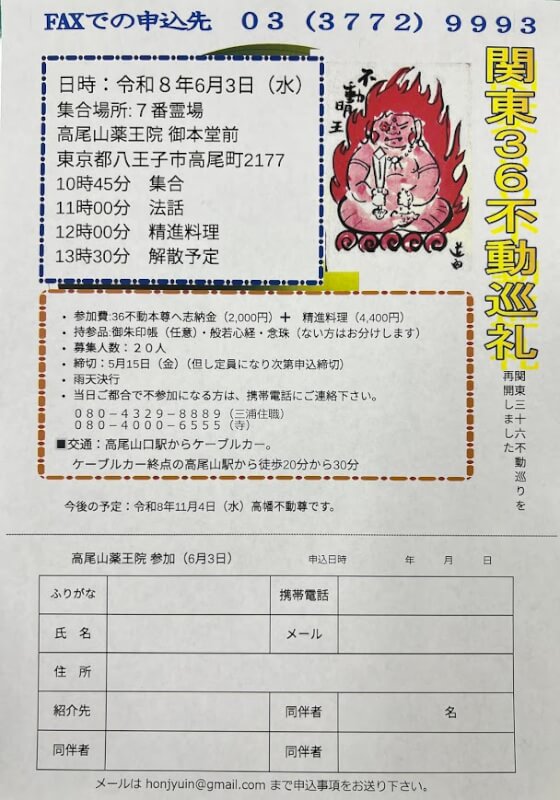 FAXでの申込先　０３（３７７２）９９９３
関東３６不動巡礼
関東三十六不動巡りを
再開しました
不動明王
日時：令和８年6月3日（水）
集合場所:７番霊場
高尾山薬王院 御本堂前
東京都八王子市高尾町2177
10時45分　集合
11時00分　法話
12時00分　精進料理
13時30分　解散予定
・参加費:36不動本尊へ志納金（2,000円）＋　精進料理（4,400円）
・持参品:御朱印帳（任意）・般若心経・念珠（ない方はお分けします）
・募集人数：２０人
・締切：5月15日（金）（但し定員になり次第申込締切）
・雨天決行
・当日ご都合で不参加になる方は、携帯電話にご連絡下さい。
０８０－４３２９－８８８９（三浦住職）
０８０－４０００－６５５５（寺）
■交通：高尾山口駅からケーブルカー。
ケーブルカー終点の高尾山駅から徒歩20分から30分
今後の予定：令和8年11月4日（水）高幡不動尊です。
高尾山薬王院 参加（6月3日）　申込日時　年　月　日
ふりがな　携帯電話
氏　名　メール
住　所
紹介先　同伴者　名
同伴者　同伴者
メールは honjyuin@gmail.com まで申込事項をお送り下さい。